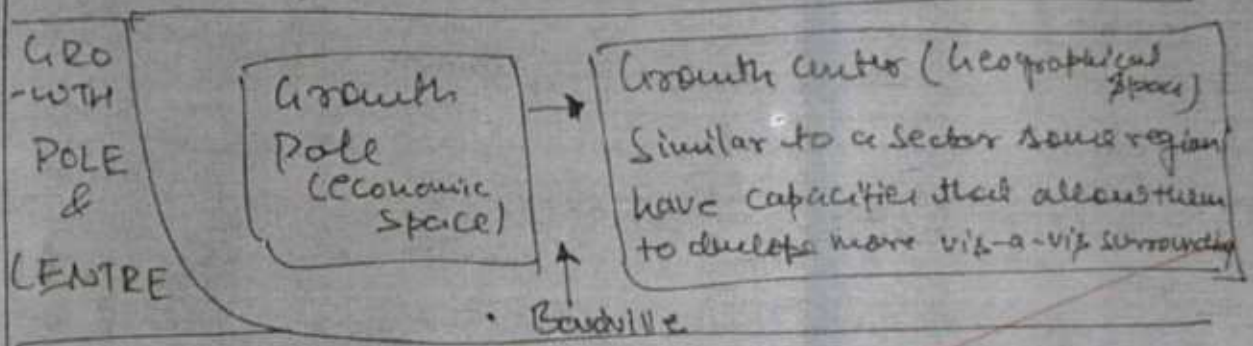 GRO
-WTH
POLE
&
CENTRE
Growth
Pole
(economic
space)
Growth center (Geographical
space)
Similar to a sector some region
have capacities that allows them
to develops more vis-a-vis surrounding
• Boudville